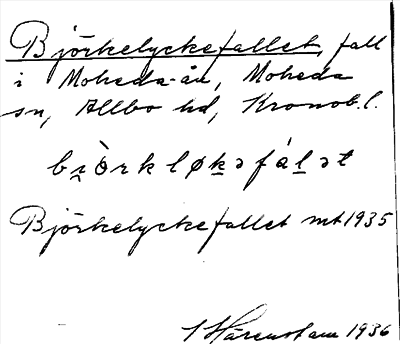 Björkelyckefallet, fall
i Moheda-ån, Moheda
sn, Allbo hd, Kronob. l.
Björkelyckefallet mt 1935
Härenstam 1936